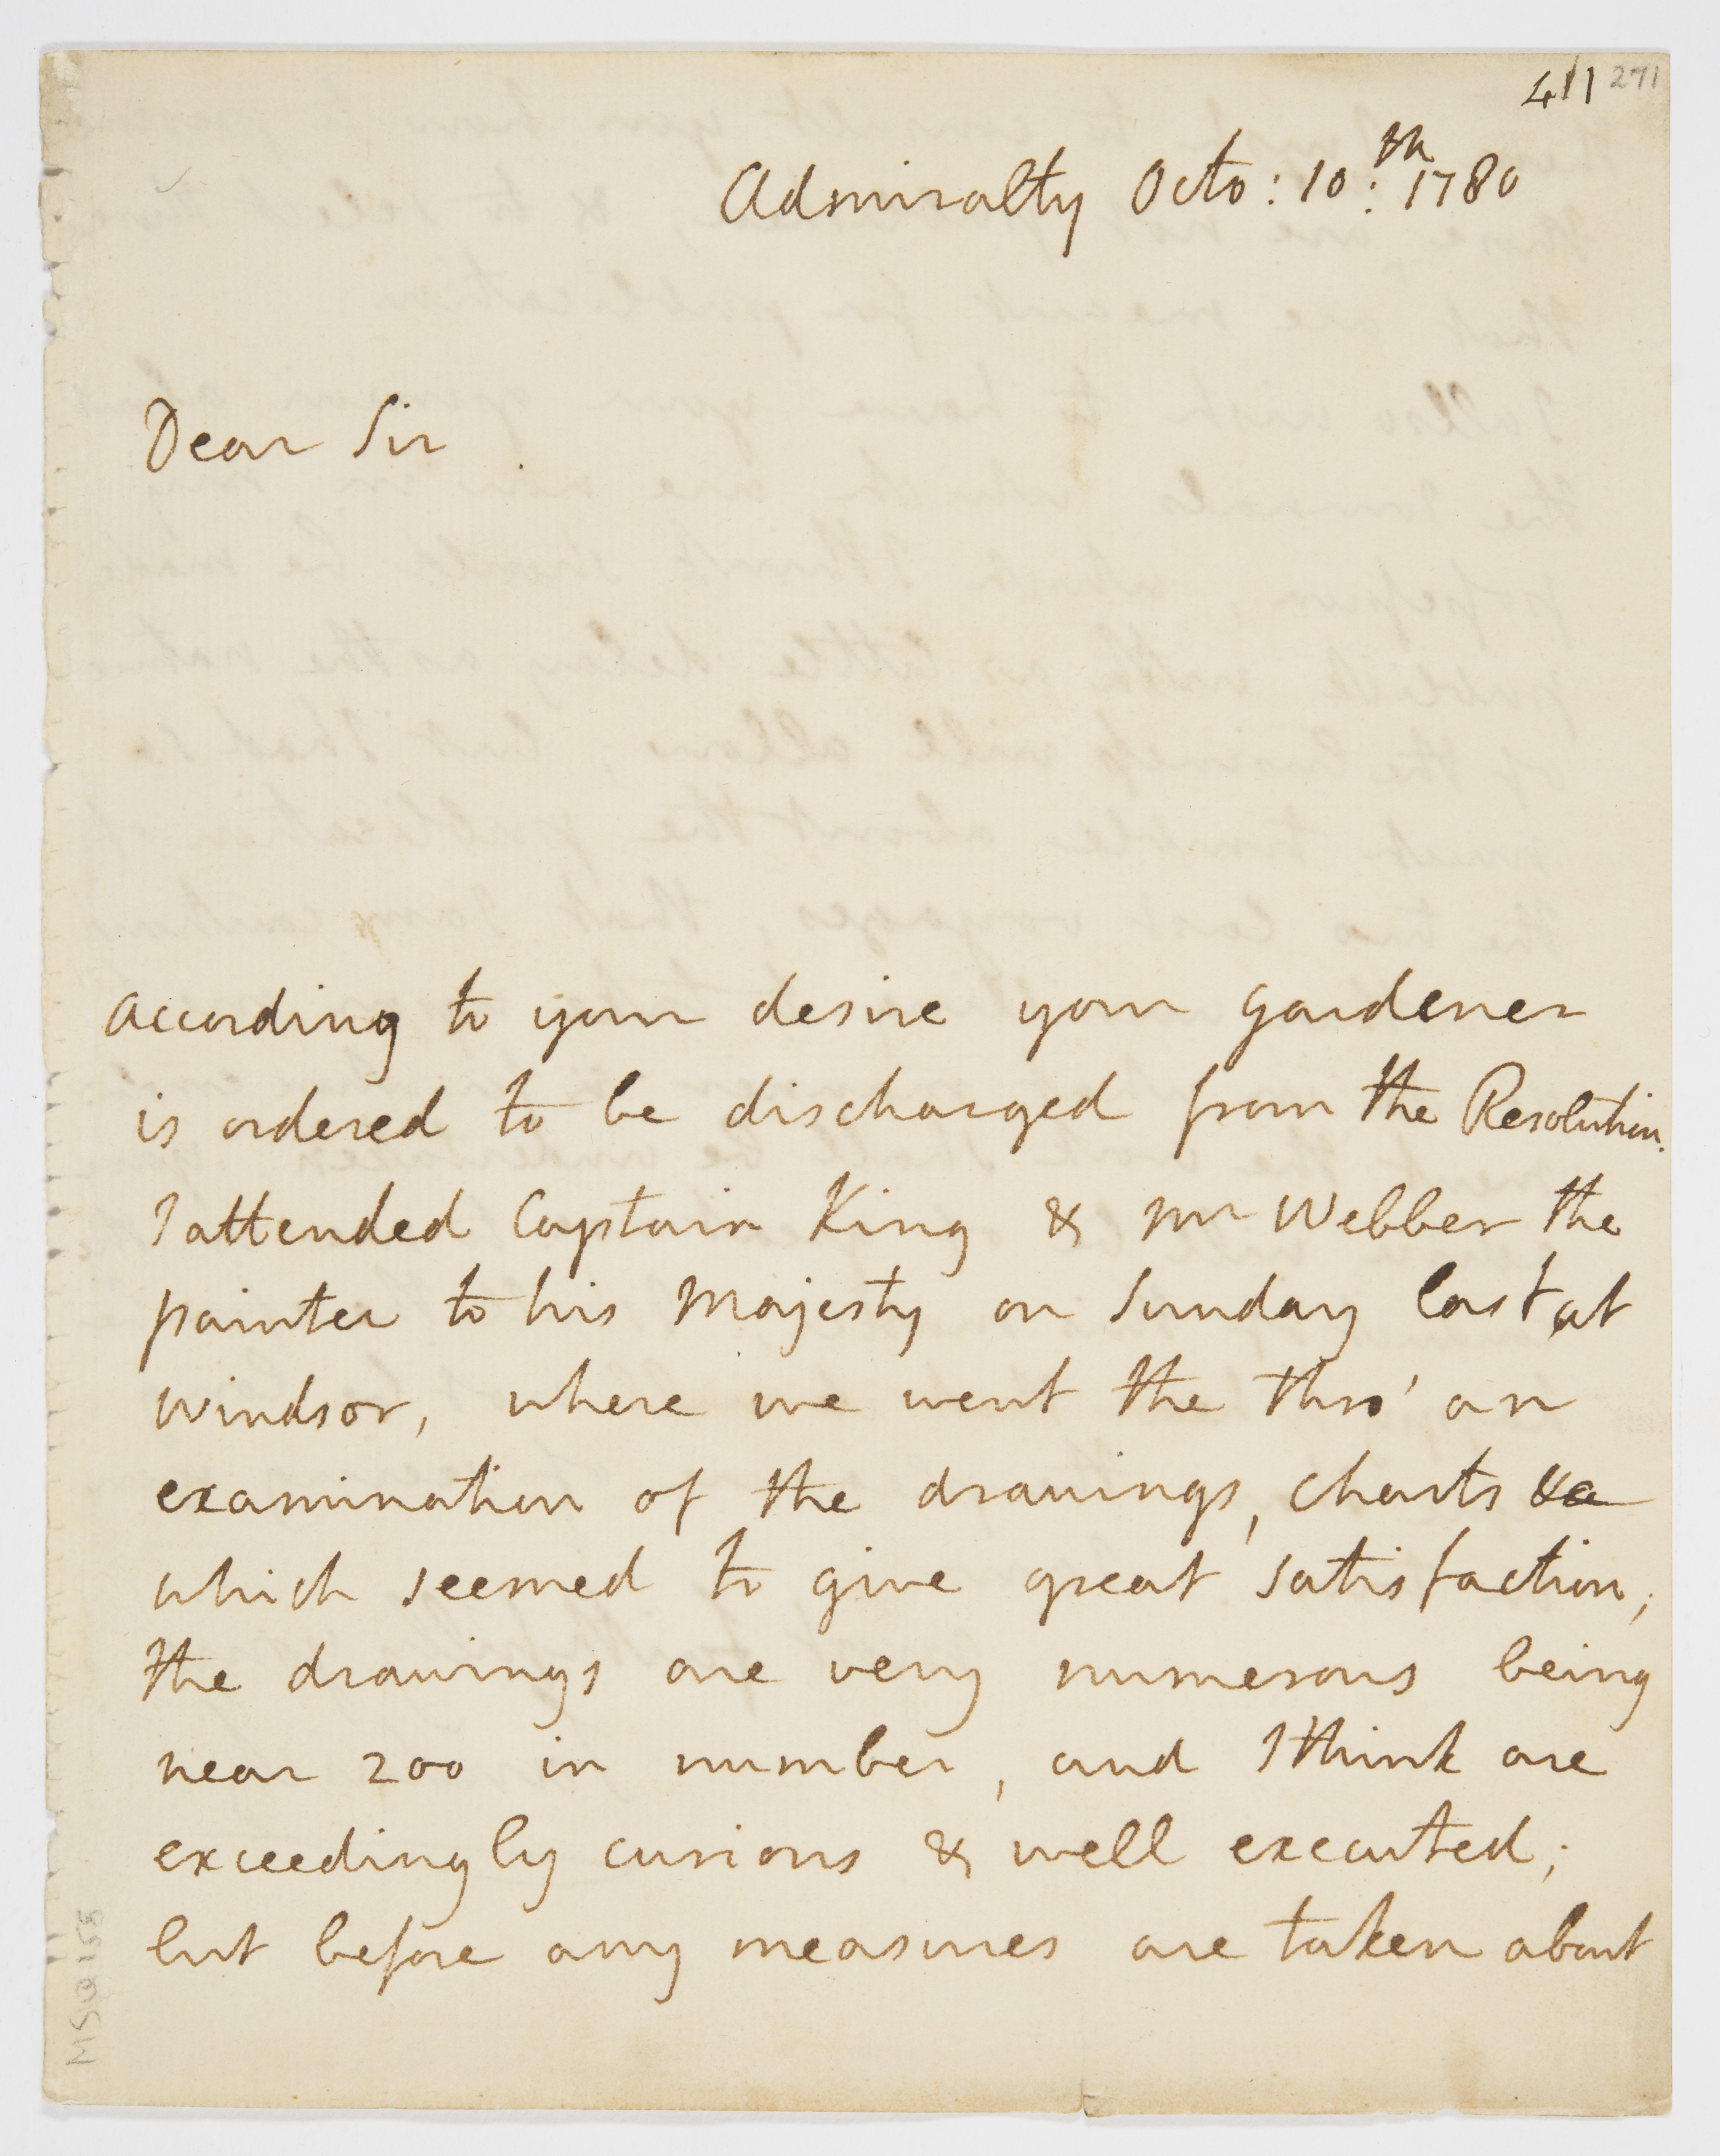 411 271
Admiralty Octo: 10:th 1780
Dear Sir
according to your desire your gardener
is ordered to be discharged from the Resolution.
I attended Captain King & Mr Webber the
painter to his Majesty on Sunday last, at
Windsor, where we went the thro' an
examination of the drawings, charts &c
which seemed to give great satisfaction;
the drawings are very numerous being
near 200 in number, and I think are
exceedingly curious & well executed;
but before any measures are taken about
MSQ 158